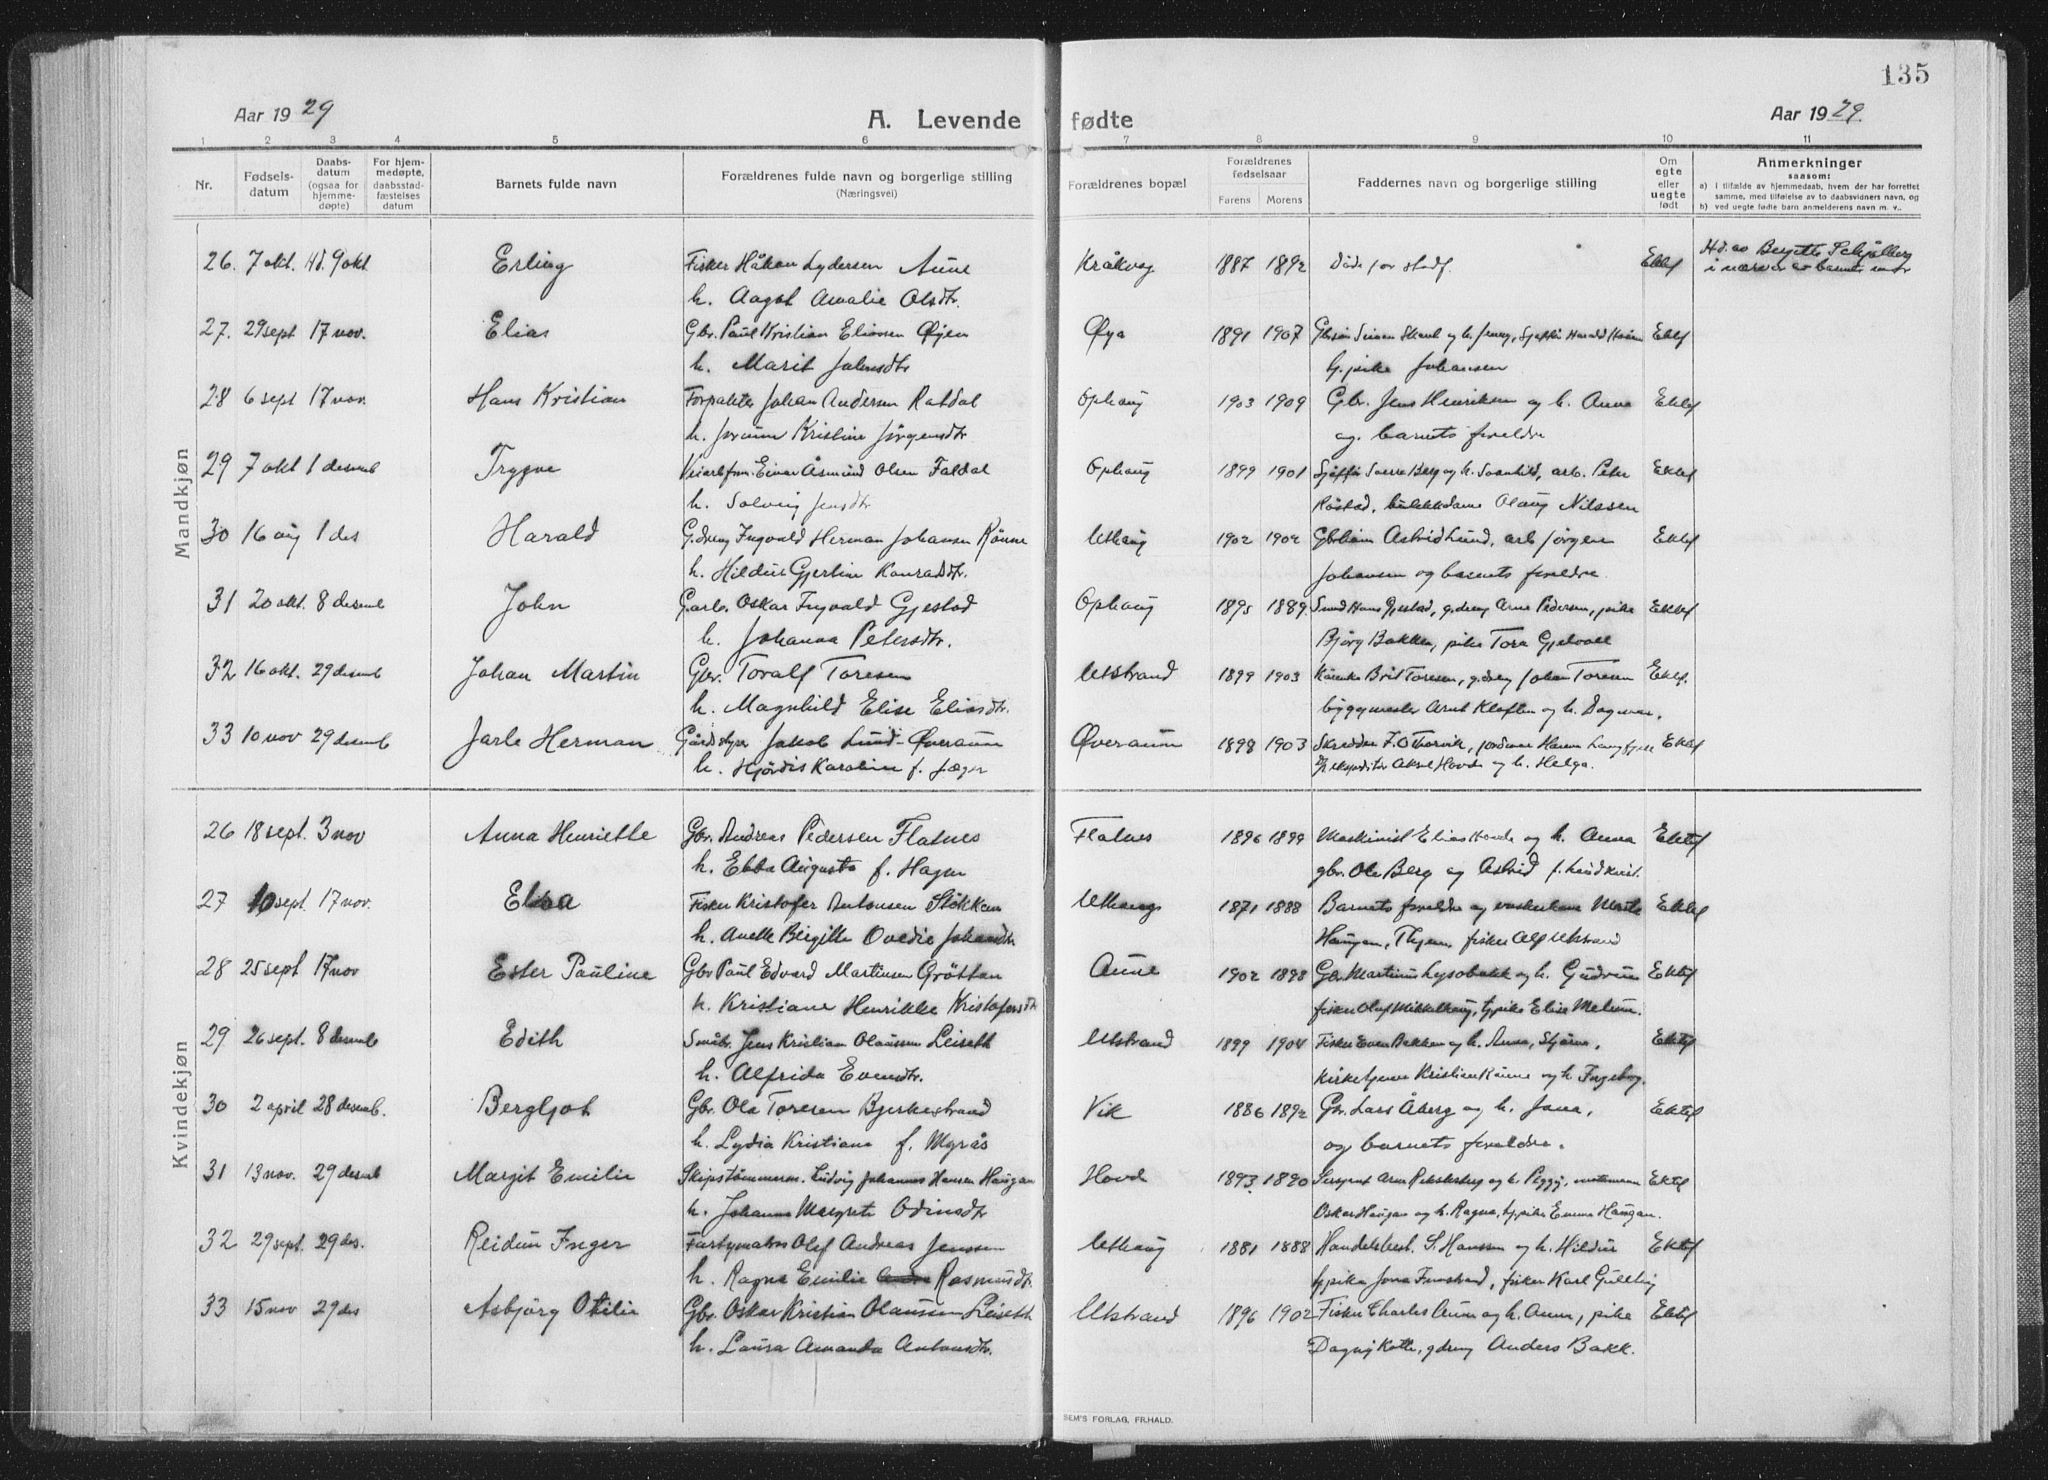 135
Aar 1929 A. Levende fødte Aar 1929.
1 2 3 4 5 6 7 8 9 10 11
Nr. Fødselsdatum Daabsdatum (ogsaa for hjemmedøpte) For hjemmedøpte, daabsstadfæstelses datum Barnets fulde navn Forældrenes fulde navn og borgerlige stilling (Næringsvei) Forældrenes bopæl Forældrenes fødselsaar Farens Morens Faddernes navn og borgerlige stilling Om egte eller uegte født Anmerkninger saasom:
a) i tilfælde av hjemmedaab, hvem der har forrettet samme, med tilføielse av to daabsvidners navn, og
b) ved uegte fødte barn anmelderens navn m. v..
Mandkjøn
26. 7 okt. Hd. 9 okt Erling Fisker Håkon Lydersen Aune Kråkvåg 1887 1892 Døde før stadf. Ektef Hd. av Bergitte Schjølberg
h. Aagot Amalie Olsdtr. i nærvær av barnets mor
27. 29 sept 17 nov. Elias Gbr. Paul Kristian Eliassen Øyen Øya 1891 1907 og h. Jenny, Harald Ektef
h. Marit Johnsdtr Johansen
28 6 sept 17 nov. Hans Kristian Forpakter Johan Andersen Ratdal Ophaug 1903 1909 Gbr. Jens Henriksen og h. Anna Ektef
h. Jorunn Kristine Jørgensdtr og barnets foreldre
29 7 okt 1 desemb Trygve Veiarbfm. Einar Åsmund Olsen Faldal Ophaug 1899 1901 Sverre Berg og h. Svanhild, arb. Peter Ektef
h. Solveig Jensdtr Røstad, butikkdame Olaug Nilssen
30 16 aug 1 des Harald G.dreng Ingvald Herman Johansen Rönne Uthaug 1902 1902 Astrid Lund, arb Jørgen Ektef
h. Hildur Gjertine Konradsdtr. Johansen og barnets foreldre.
31 20 okt. 8 desemb John G.arb. Oskar Ingvald Gjestad Ophaug 1895 1889. Smed Hans Gjestad, g.dreng Arne Pedersen, pike Ektef
h. Johanna Petersdtr. Bjørg Bakken, pike Tora Gjelvold
32 16 okt. 29 desemb Johan Martin Gbr. Toralf Toresen Utstrand 1899 1903 Brit Toresen, g.dreng Johan Toresen Ektef.
h. Magnhild Elise Eliasdtr. byggmester Arnt Kloften og h. Dagmar.
33 10 nov 29 desemb Jarle Herman Gårdstyrer Jakob Lund-Øveraune Øveraune 1898 1903 Skredder F. O. Ektef
h. Hjørdis Karoline f. Jæger ekspeditør Aksel Hovde og h. Helga.
Kvindekjøn
26 18 sept. 3 nov Anna Henriette Gbr. Andreas Pedersen Flatnes Flatnes 1896 1899 Maskinist Elias Hovde og h. Anna Ektef
h. Ebba Augusta f. Hagen gbr. Ole Berg og Astrid f. Lindkvist.
27 10 sept. 17 nov. Elsa Fisker Kristofer Antonsen Stökkan Uthaug 1871 1888 Barnets foreldre og Ektef
h. Anette Birgitte Ovedie Johansdtr Haugan, fisker Alf Utstrand
28 25 sept 17 nov Ester Pauline Gbr Paul Edvard Martinsen Gröttan Aune 1902 1898 Gbr. Martinus Lysobakk og h. Gudrun Ektef
h. Kristiane Henrikke Kristofersdtr fisker Olaf Mikkelhaug, tj.pike Elise Melum.
29 26 sept. 8 desemb Edith Småbr. Jens Kristian Olaussen Leiseth Utstrand 1899 1904 Fisker Even Bakken og h. Anna, Stjørna, Ektef
h. Alfrida Evensdtr. kirketjener Kristian Rönne og h Ingeborg.
30 2 april 28 desemb. Bergljot Gbr. Ole Toresen Bjerkestrand Vik 1886 1892 Gbr. Lars Åberg og h. Jona, Ektef
h. Lydia Kristiane f. Myrås og barnets foreldre.
31 13 nov. 29 desemb Margit Emilie Skipstømmerm. Ludvig Johannes Hansen Haugan Hovde 1893. 1890 Sersjant Arne og h. Peggy, Ektef
h. Johanna Margrete Odinsdtr Oskar Haugan og h. Ragna, tj.pike Emma Haugan.
32 29 sept. 29 des. Reidun Inger Fartymatros Olaf Andreas Jenssen Uthaug 1881 1888 Handelsbest. S. Hanssen og h. Hildur Ektef
h. Ragna Emilie Rasmusdtr. tj.pike Jona, fisker Karl Gulling
33 15 nov 29 des Asbjørg Otilie Gbr. Oskar Kristian Olaussen Leiseth Utstrand 1896 1902 Fisker Charles Aune og h. Anna, pike Ektef
h. Laura Amanda Antonsdtr. Dagny Kotte, g dreng Anders Bakk.
SEM'S FORLAG, FR.HALD.